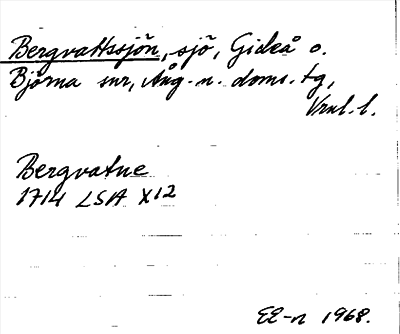 Bergvattssjön, sjö, Gideå o.
Björna snr, Ång. n. doms. tg,
Vrnl. l.
Bergvatne
1714 LSA X12
EE-n 1968.